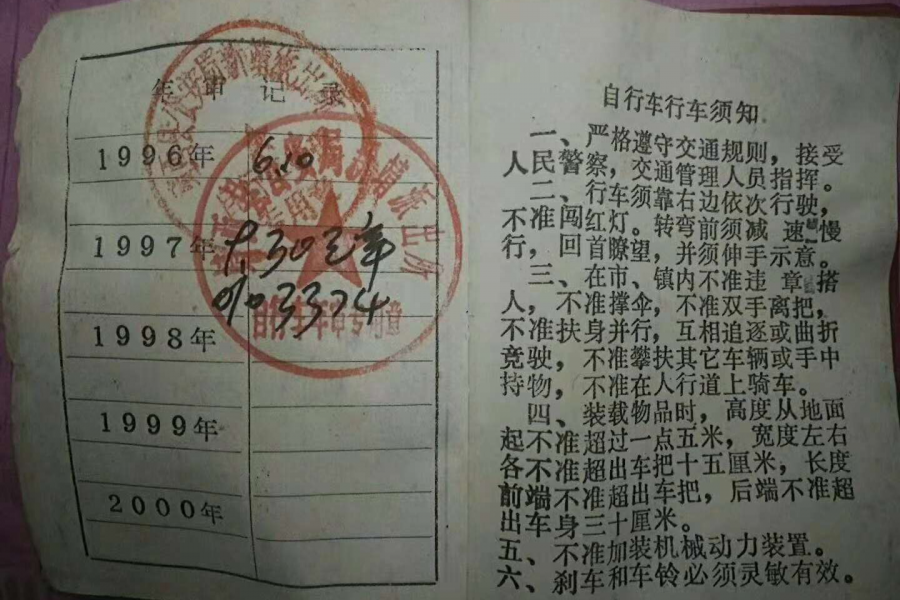 年审记录
1996年
6.10
1997年
9.30
0103374
1998年
1999年
2000年
自行车行车须知
一、严格遵守交通规则，接受
人民警察，交通管理人员指挥。
二、行车须靠右边依次行驶，
不准闯红灯。转弯前须减 速慢
行，回首瞭望，并须伸手示意。
三、在市、镇内不准违 章搭
人，不准撑伞，不准双手离把，
不准扶身并行，互相追逐或曲折
竞驶，不准攀扶其它车辆或手中
持物，不准在人行道上骑车。
四、装载物品时，高度从地面
起不准超过一点五米，宽度左右
各不准超出车把十五厘米，长度
前端不准超出车把，后端不准超
出车身三十厘米。
五、不准加装机械动力装置。
六、刹车和车铃必须灵敏有效。